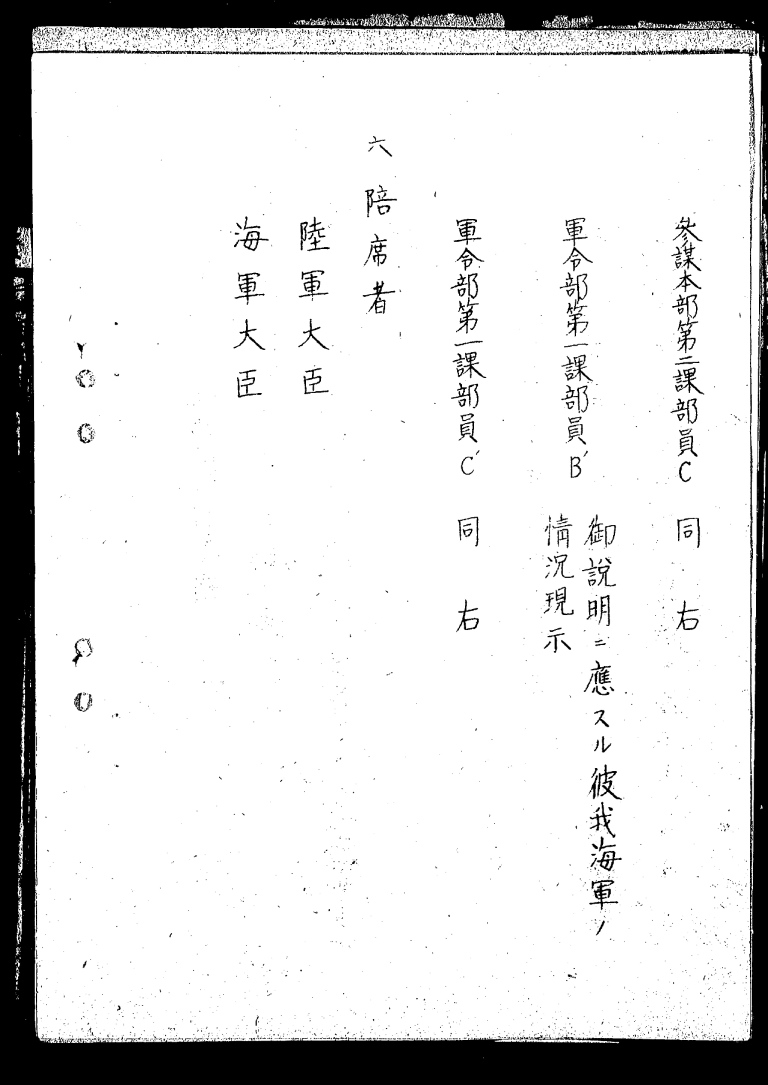 參謀本部第二課部員C 同右
軍令部第一課部員B′ 御説明ニ應スル彼我海軍ノ
情況現示
軍令部第一課部員C′ 同右
六 陪席者
陸軍大臣
海軍大臣